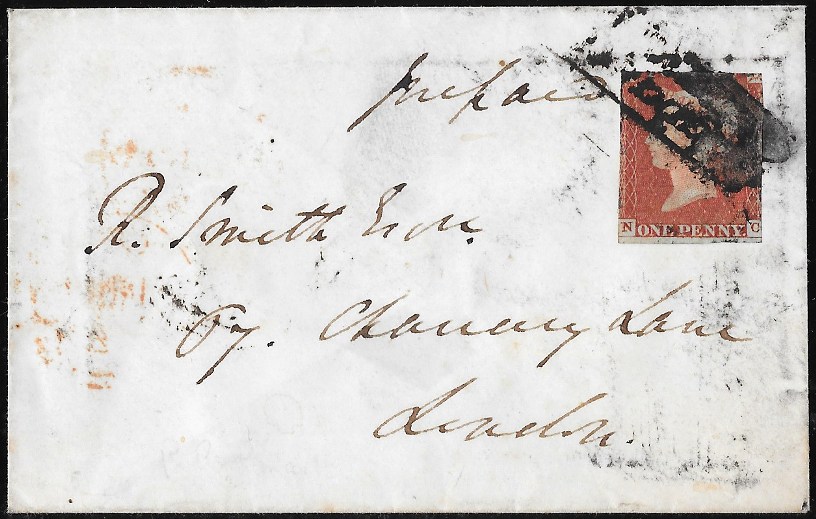 prepaid
R. Smith Esqr.
67. Chancery Lane
London.
N ONE PENNY. C